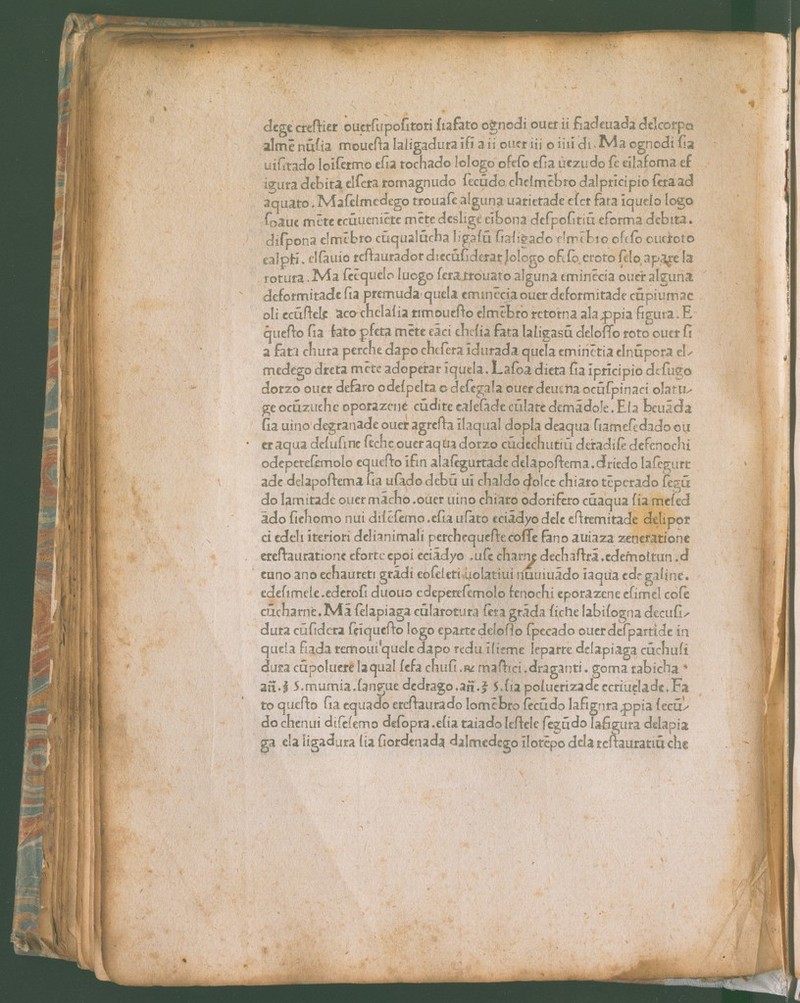 dege creſtier ouerſupoſitori ſiafato ognodi ouer ii fiadeuada delcorpo
almē nūſia moueſta laligadura iſi a ii ouer iii o iiii di. Ma ognodi ſia
uiſitado loiſermo eſia tochado lologo ofeſo eſia uezudo ſe eilafoma ef
igura debita elſera tornagnudo ſecūdo chelmēbro dalprīcipio ſera ad
aquato. Maſelmedego trouaſe alguna uarietade eſer fata īquelo logo
ſoaue mēte ecūueniēte mēte deslige eibona deſpoſitiū eforma debita.
diſpona elmēbro cūqualūcha ligaſū ſialigado elmēbro ofeſo oueroto
ealpſi. elſauio reſtaurador diecūſiderar lologo ofeſo eroto ſelo apare la
rotura. Ma ſeēquelo luogo ſera trouato alguna eminēcia ouer alguna
deformitade ſia premuda quela eminēcia ouer deformitade cūpiumac
oli ecūſtele aco chelaſia rimoueſto elmēbro retorna ala ꝓpia figura. E
queſto ſia fato pfeta mēte eāci cheſia fata laligasū deloſſo roto ouer ſi
a fata chura perche dapo cheſera īdurada quela eminētia elnūpora el-
medego dreta mēte adoperar īquela. Lafoa dieta ſia īprīcipio deſugo
dorzo ouer defaro odeſpelta o deſegala ouer deuena ocūſpinaci olatu-
ge ocūzuche oporazene cūdite ealeſade cūlate demādole. Ela beuāda
ſia uino degranade ouer agreſta īlaqual dopla deaqua ſiameſedado ou
er aqua deſuſine ſeche ouer aqua dorzo cūdechutiū deradiſe defenochi
odepereſemolo equeſto īfin alaſegurtade delapoſtema. driedo laſegurt
ade delapoſtema ſia uſado debū ui chaldo dolce chiaro tēperado ſegū
do lamitade ouer mācho. ouer uino chiaro odorifero cūaqua ſia meſed
ādo ſichomo nui diſēſemo. eſia uſato eciādyo dele eſtremitade deli por
ci edeli īteriori delianimali perchequeſte coſſe fano auiaza zeneratione
ereſtauratione eforte epoi eciādyo .uſe charne dechaſtrā. edemoltun. d
euno ano echaureti grādi eofeleti uolatiui nūuiuādo īaqua ede galine.
edeſimele. ederofi duouo edepereſemolo fenochi eporazene eſimel coſe
cūcharne. Ma ſelapiaga cūlarotura ſera grāda ſiche labiſogna decuſi-
dura cūſidera ſeiqueſto logo eparte deloſſo ſpecado ouer deſpartide in
quela fiada remoui quele dapo redu īſieme leparte delapiaga cūchuſi
dura cūpoluere la qual ſeſa chuſi. ℞ maſtici. draganti. goma rabicha
añ. ʒ 5. mumia. ſangue dedrago. añ. ʒ 5. ſia poluerizade ecriuelade. Fa
to queſto ſia equado ereſtaurado lomēbro ſecūdo lafigura ꝓpia ſecū-
do chenui diſeſemo deſopra. eſia taiado leſtele ſegūdo lafigura delapia
ga ela ligadura ſia ſiordenada dalmedego īlotēpo dela reſtauratiū che